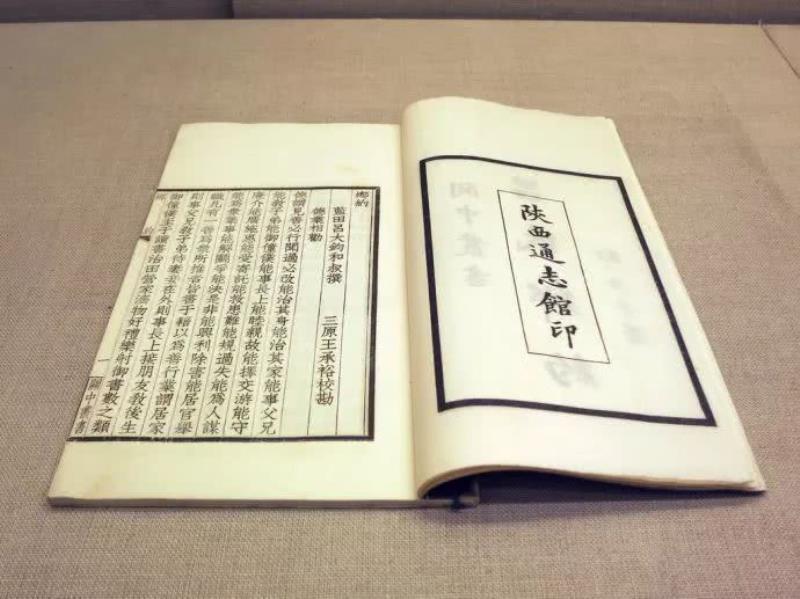 陝西通志館印
鄉約
藍田呂大鈞和叔撰　三原王承裕校勘
德業相勸
德謂見善必行聞過必改能治其身能治其家能事父兄
能教子弟能御僮僕能事長上能睦親故能擇交游能守
廉介能廣施惠能受寄託能救患難能規過失能為人謀
能為衆集事能解鬬爭能決是非能興利除害能居官舉
職凡有一善為衆所推者皆書于籍以為善行業謂居家
則事父兄教子弟待妻妾在外則事長上接朋友教後生
御僮僕至于讀書治田營家濟物好禮樂射御書數之類
一　關中叢書